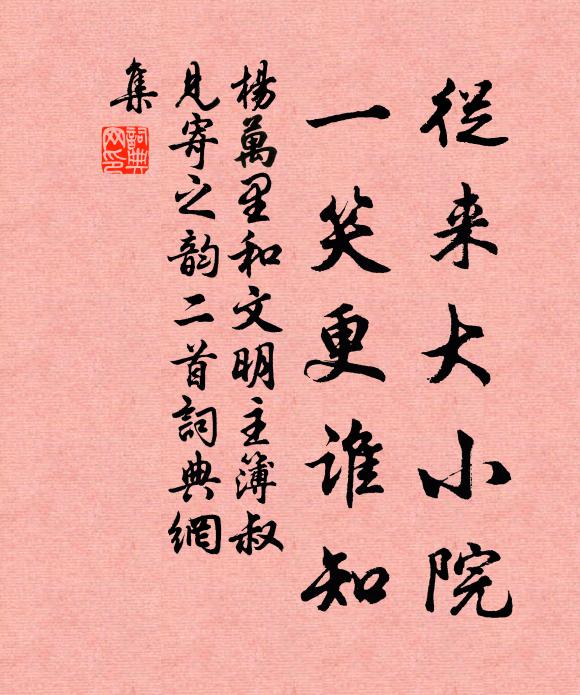 從来大小院
一笑更誰知
楊萬里和文明主簿叔
見寄之韵二首詞典網
集
詞典
网印